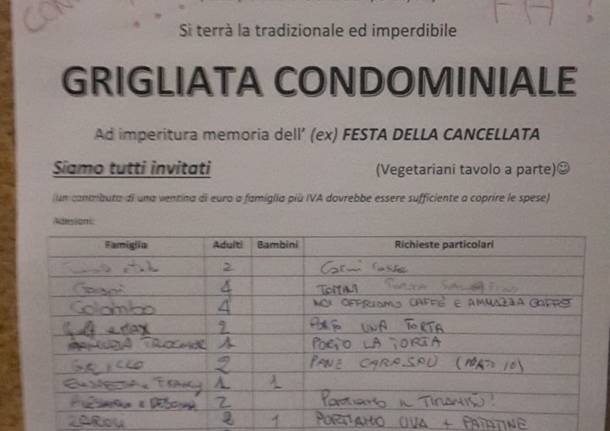 Si terrà la tradizionale ed imperdibile
GRIGLIATA CONDOMINIALE
Ad imperitura memoria dell' (ex) FESTA DELLA CANCELLATA
Siamo tutti invitati (Vegetariani tavolo a parte)☺
(un contributo di una ventina di euro a famiglia più IVA dovrebbe essere sufficiente a coprire le spese)
Adesioni:
Famiglia Adulti Bambini Richieste particolari
2 Carni rosse
4 TOMINI
Colombo 4 NOI OFFRIAMO CAFFÈ E AMMAZZA CAFFÈ
2 PORTO UNA TORTA
1 PORTO LA TORTA
GRILLO 2 PANE CARASAU (PORTO IO)
1 1
2 Portiamo il TIRAMISÙ!
2 1 PORTIAMO UVA + PATATINE